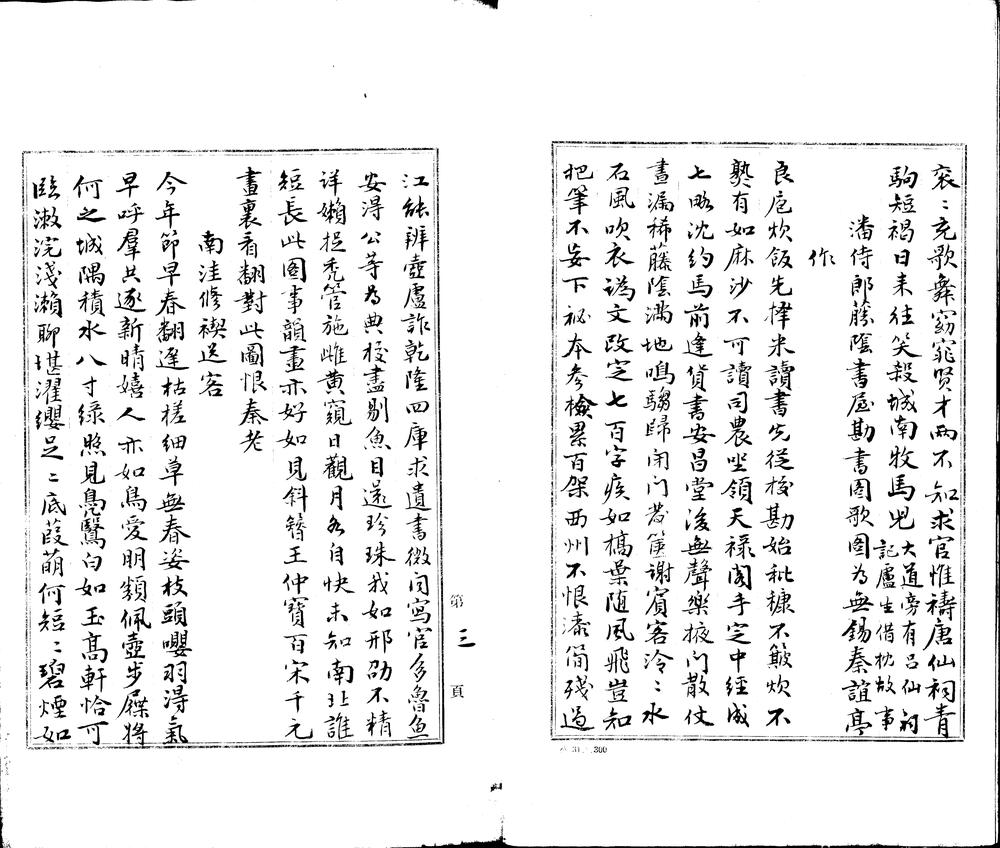 衮〻充歌舞窈窕賢才兩不知求官惟禱唐仙祠青
駒短褐日来往笑殺城南牧馬児大道旁有吕仙祠記盧生借枕故事
潘侍郎藤陰書屋勘書图歌图為無錫秦誼亭
作
良庖炊飯先擇米讀書先從校勘始秕糠不簸炊不
熟有如麻沙不可讀司農坐領天禄阁手定中經成
七略沈約馬前逢貨書安昌堂後無聲樂掖门散仗
晝漏稀藤陰滿地鳴騶歸闭门謝賓客泠〻水
石風吹衣譌文改定七百字疾如槁葉随風飛豈知
把筆不妄下祕本参檢累百架西州不恨漆简殘過
江能辨壺盧詐乾隆四庫求遺書微闻寫官多魯魚
安淂公等為典校盡剔魚目還珍珠我如邢劭不精
详嬾捉秃管施雌黄窺日觀月各自快未知南北誰
短長此图事韻畫亦好如見斜簪王仲寶百宋千元
畫裏看翻對此圖恨秦老
南洼修禊送客
今年節早春翻遲枯槎细草無春姿枝頭嚶羽淂氣
早呼羣共逐新晴嬉人亦如鳥愛明類佩壺步屧将
何之城隅積水八寸緑照見鳧鷖白如玉高軒恰可
臨潄浣淺瀨聊堪濯纓足〻底葭萌何短〻碧煙如
第三頁